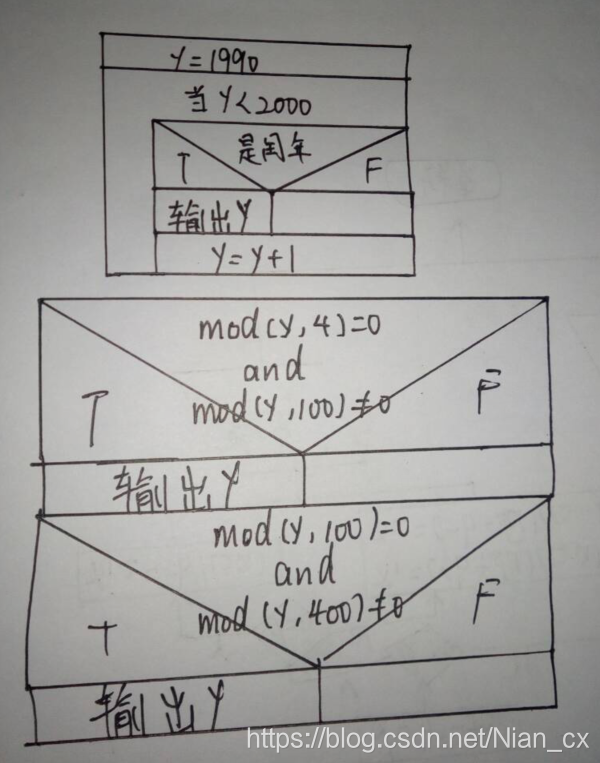 Y=1990
当Y<2000
是闰年
T
F
输出Y
Y=Y+1
mod(Y,4)=0
and
mod(Y,100)≠0
T
F
输出Y
mod(Y,100)=0
and
mod(Y,400)≠0
T
F
输出Y
https://blog.csdn.net/Nian_cx